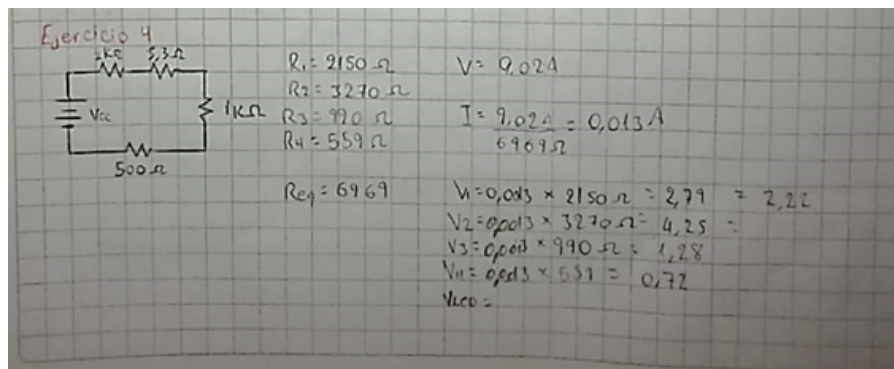 Ejercicio 4
2KΩ 5,3Ω
Vcc
1KΩ
500Ω
R1= 2150 Ω
R2= 3270 Ω
R3= 990 Ω
R4= 559 Ω
Req= 6969
V= 9,02A
I= 9,02A = 0,013A
6969Ω
V1=0,0013 × 2150 Ω = 2,79 = 2,22
V2=0,0013 × 3270 Ω= 4,25 =
V3=0,0013 × 990 Ω = 1,28
V4= 0,0013 × 559 = 0,72